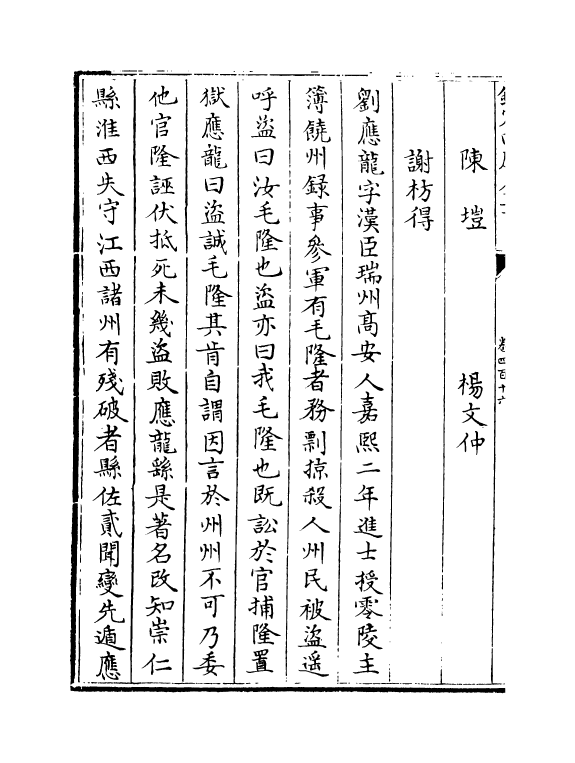 陳塏　楊文仲
謝枋得
劉應龍字漢臣瑞州髙安人嘉熙二年進士授零陵主
簿饒州録事參軍有毛隆者務剽掠殺人州民被盜遥
呼盜曰汝毛隆也盜亦曰我毛隆也既訟於官捕隆置
獄應龍曰盜誠毛隆其肯自謂因言於州州不可乃委
他官隆誣伏抵死未幾盜敗應龍繇是著名改知崇仁
縣淮西失守江西諸州有殘破者縣佐貳聞變先遁應